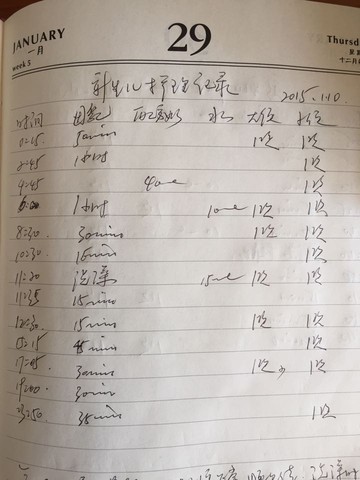 JANUARY 29 Thursd
一月
week 5 十二月
新生儿护理记录 2015.1.10
时间 母乳 配方奶 水 大便 小便
0:15 50mins 1次 1次
2:45 1小时 1次
4:45 40ml 1次
6:00 1小时 10ml 1次 1次
8:30 30mins 1次 1次
10:30 15mins 1次
11:20 洗澡 15ml 1次 1次
15mins
12:30 15mins 1次 1次
15:15 45mins 1次
17:05 30mins 1次 1次
19:00 30mins
23:50 35mins 1次